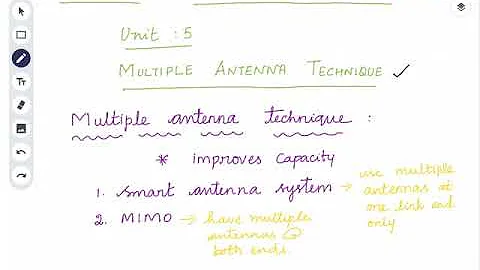 Unit : 5
MULTIPLE ANTENNA TECHNIQUE ✓
Multiple antenna technique :
* improves Capacity
1. Smart antenna system → use multiple antennas at one link end only
2. MIMO → have multiple antennas @ both ends